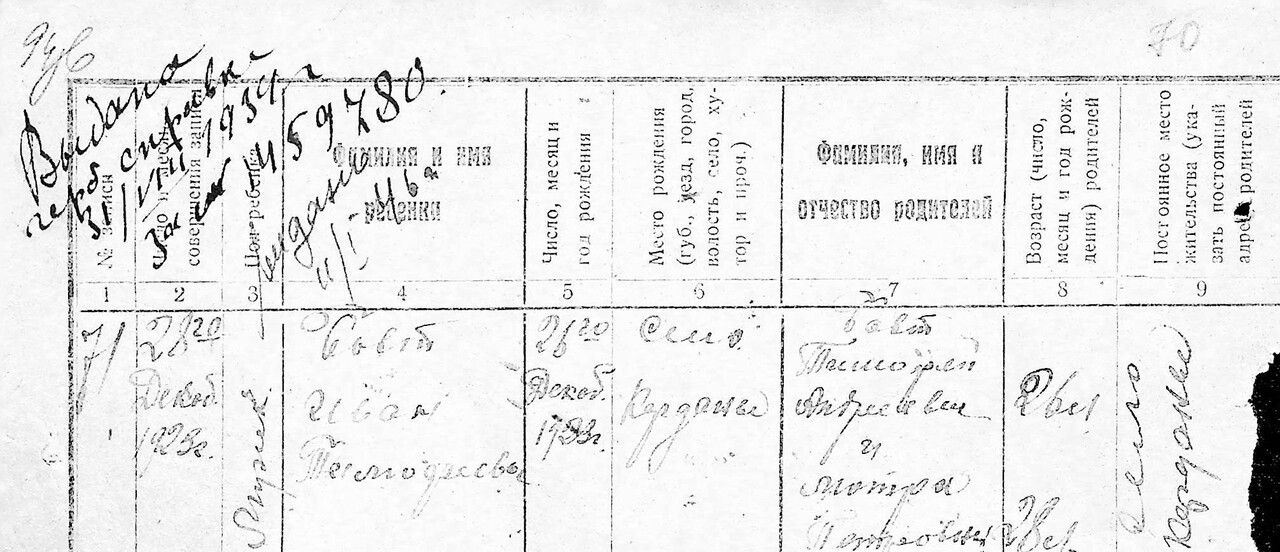 70
Выдана
справка
31/VIII 1934 г
459780.
выдана
11/I 46 г
№ записи
совершения записи
Пол ребенка
Фамилия и имя
ребенка
Число, месяц и
год рождения
Место рождения
(губ., уезд, город,
волость, село, ху-
тор и проч.)
Фамилия, имя и
отчество родителей
Возраст (число,
месяц и год рож-
дения) родителей
Постоянное место
жительства (ука-
зать постоянный
адрес) родителей
1 2 3 4 5 6 7 8 9
71
28го
Декаб.
1923г.
Мужск
Бовт
Иван
Тимофеевич
28го
Декаб.
1923г.
Село
Бовт
Тимофей
Андреевич
и
Мотря
Петровна
26 л
28 л
Село